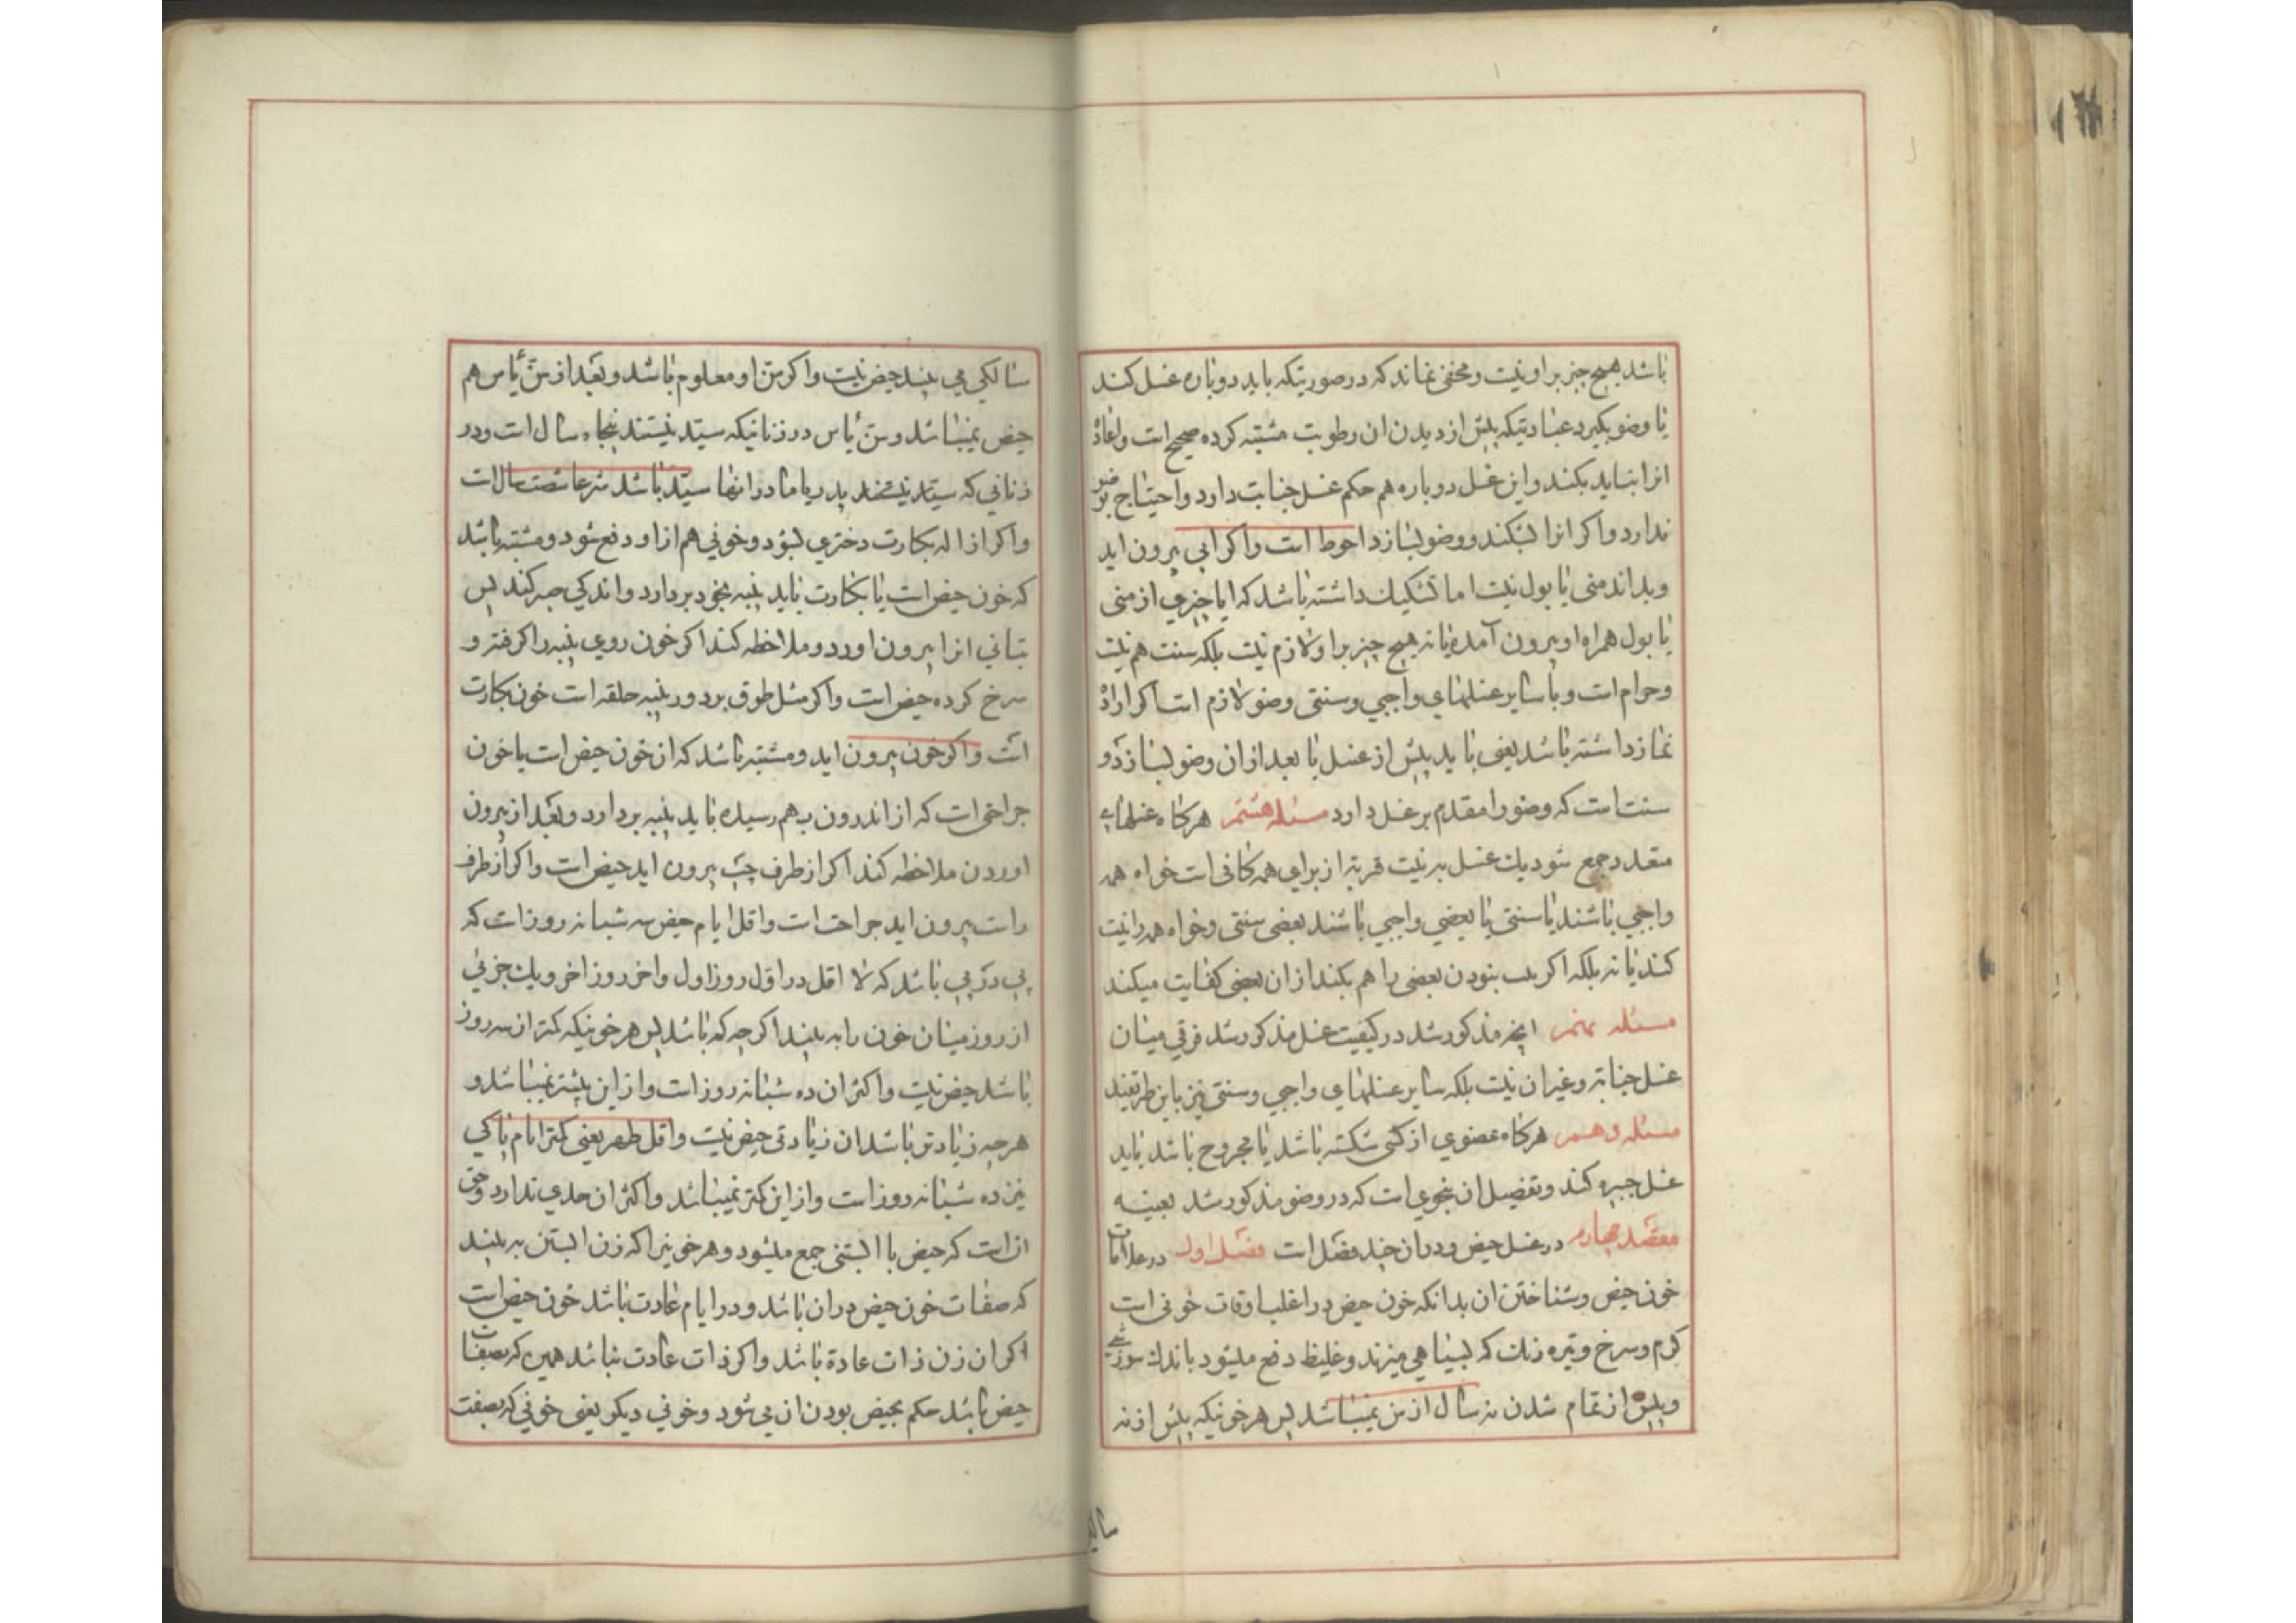 باشد هیچ چیز بر او نیست و مخفی نماند که در صورتیکه باید دوباره غسل کند
یا وضو بگیرد عبادتیکه پیش از دیدن ان رطوبت مشتبه کرده صحیح است و اعادۀ
انرا نباید بکند و این غسل دوباره هم حکم غسل جنابت دارد و احتیاج بوضو
ندارد و اگر انرا بشکند و وضو بسازد احوط است و اگر ابی بیرون اید
و بداند منی یا بول نیست اما تشکیک داشته باشد که ایا چیزی از منی
یا بول همراه او بیرون آمده یا نه هیچ چیز بر او لازم نیست بلکه سنت هم نیست
و حرام است و با سایر غسلهای واجبی و سنتی وضو لازم است اکر ارادۀ
نماز داشته باشد یعنی باید پیش از غسل یا بعد از ان وضو بسازد و
سنت است که وضو را مقدم بر غسل دارد مسئله هشتم هرکاه غسلهای
متعدد جمع شود یک غسل به نیت قربة از برای همه کافی است خواه همه
واجبی باشند یا سنتی یا بعضی واجبی باشند بعضی سنتی و خواه همه را نیت
کند یا نه بلکه اکر نیت بنودن بعضی را هم بکند از ان بعضی کفایت میکند
مسئله نهم انچه مذکور شد در کیفیت غسل مذکور شد فرقی میان
غسل جنابة و غیر ان نیست بلکه سایر غسلهای واجبی و سنتی نیز باین طریقند
مسئله دهم هرکاه عضوی از کسی شکسته باشد یا مجروح باشد باید
غسل جبیره کند و تفصیل ان بنحوی است که در وضو مذکور شد بعینه
مقصد چهارم در غسل حیض و در ان چند فصل است فصل اول در علامات
خون حیض و شناختن ان بدانکه خون حیض در اغلب اوقات خونی است
کرم و سرخ و تیره رنک که بسیاهی میزند و غلیظ دفع میشود باندک سوزشی
و پیش از تمام شدن نه سال از سن نمیباشد پس هر خونیکه پیش از نه
سالکی می بیند حیض نیست و اکر سن او معلوم باشد و بعد از سن یأس هم
حیض نمیباشد و سن یأس در زنانیکه سید نیستند پنجاه سال است و در
زنانی که سید نیستند پدر یا مادر انها سید باشد شرعا شصت سال است
و اکر ازاله بکارت دختری بشود و خونی هم از او دفع شود و مشتبه باشد
که خون حیض است یا بکارت باید پنبه بخود بردارد و اندکی صبر کند پس
بتانی انرا بیرون اورد و ملاحظه کند اکر خون روی پنبه را کرفته و
سرخ کرده حیض است و اکر مثل طوق بر دور پنبه حلقه است خون بکارت
است و اکر خون بیرون اید و مشتبه باشد که از خون حیض است یا خون
جراحتی است که از اندرون بهم رسیده باید پنبه بردارد و بعد از بیرون
اوردن ملاحظه کند اکر از طرف چپ بیرون اید حیض است و اکر از طرف
راست بیرون اید جراحت است و اقل ایام حیض سه شبانه روز است که
پی در پی باشد که لا اقل در اول روز اول و اخر روز اخر و یک جزئی
از روز میان خون را به بیند اکر چه که باشد پس هر خونیکه کمتر از سه روز
باشد حیض نیست و اکثر ان ده شبانه روز است و از این بیشتر نمیباشد و
هر چه زیادتر باشد ان زیادتی حیض نیست و اقل طهر یعنی کمتر ایام پاکی
نیز ده شبانه روز است و از این کمتر نمیباشد و اکثر ان حدی ندارد و حق
ان است که حیض با ابستنی جمع میشود و هر خونیرا که زن ابستن به بیند
که صفات خون حیض در ان باشد و در ایام عادت باشد خون حیض است
اکر ان زن ذات عادة باشد و اکر ذات عادت نباشد همین که بصفات
حیض باشد حکم بحیض بودن ان می شود و خونی دیکر یعنی خونی که بصفت